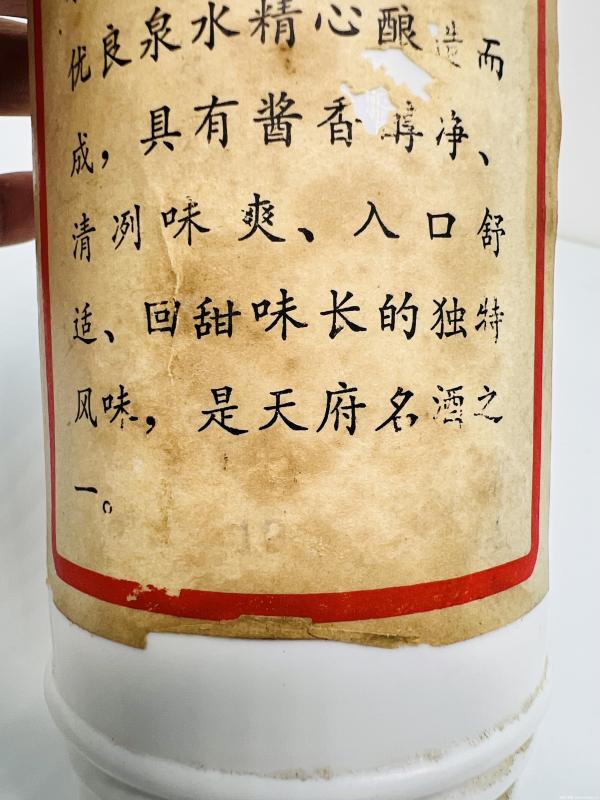 优良泉水精心酿造而
成，具有酱香醇净、
清冽味爽、入口舒
适、回甜味长的独特
风味，是天府名酒之
一。